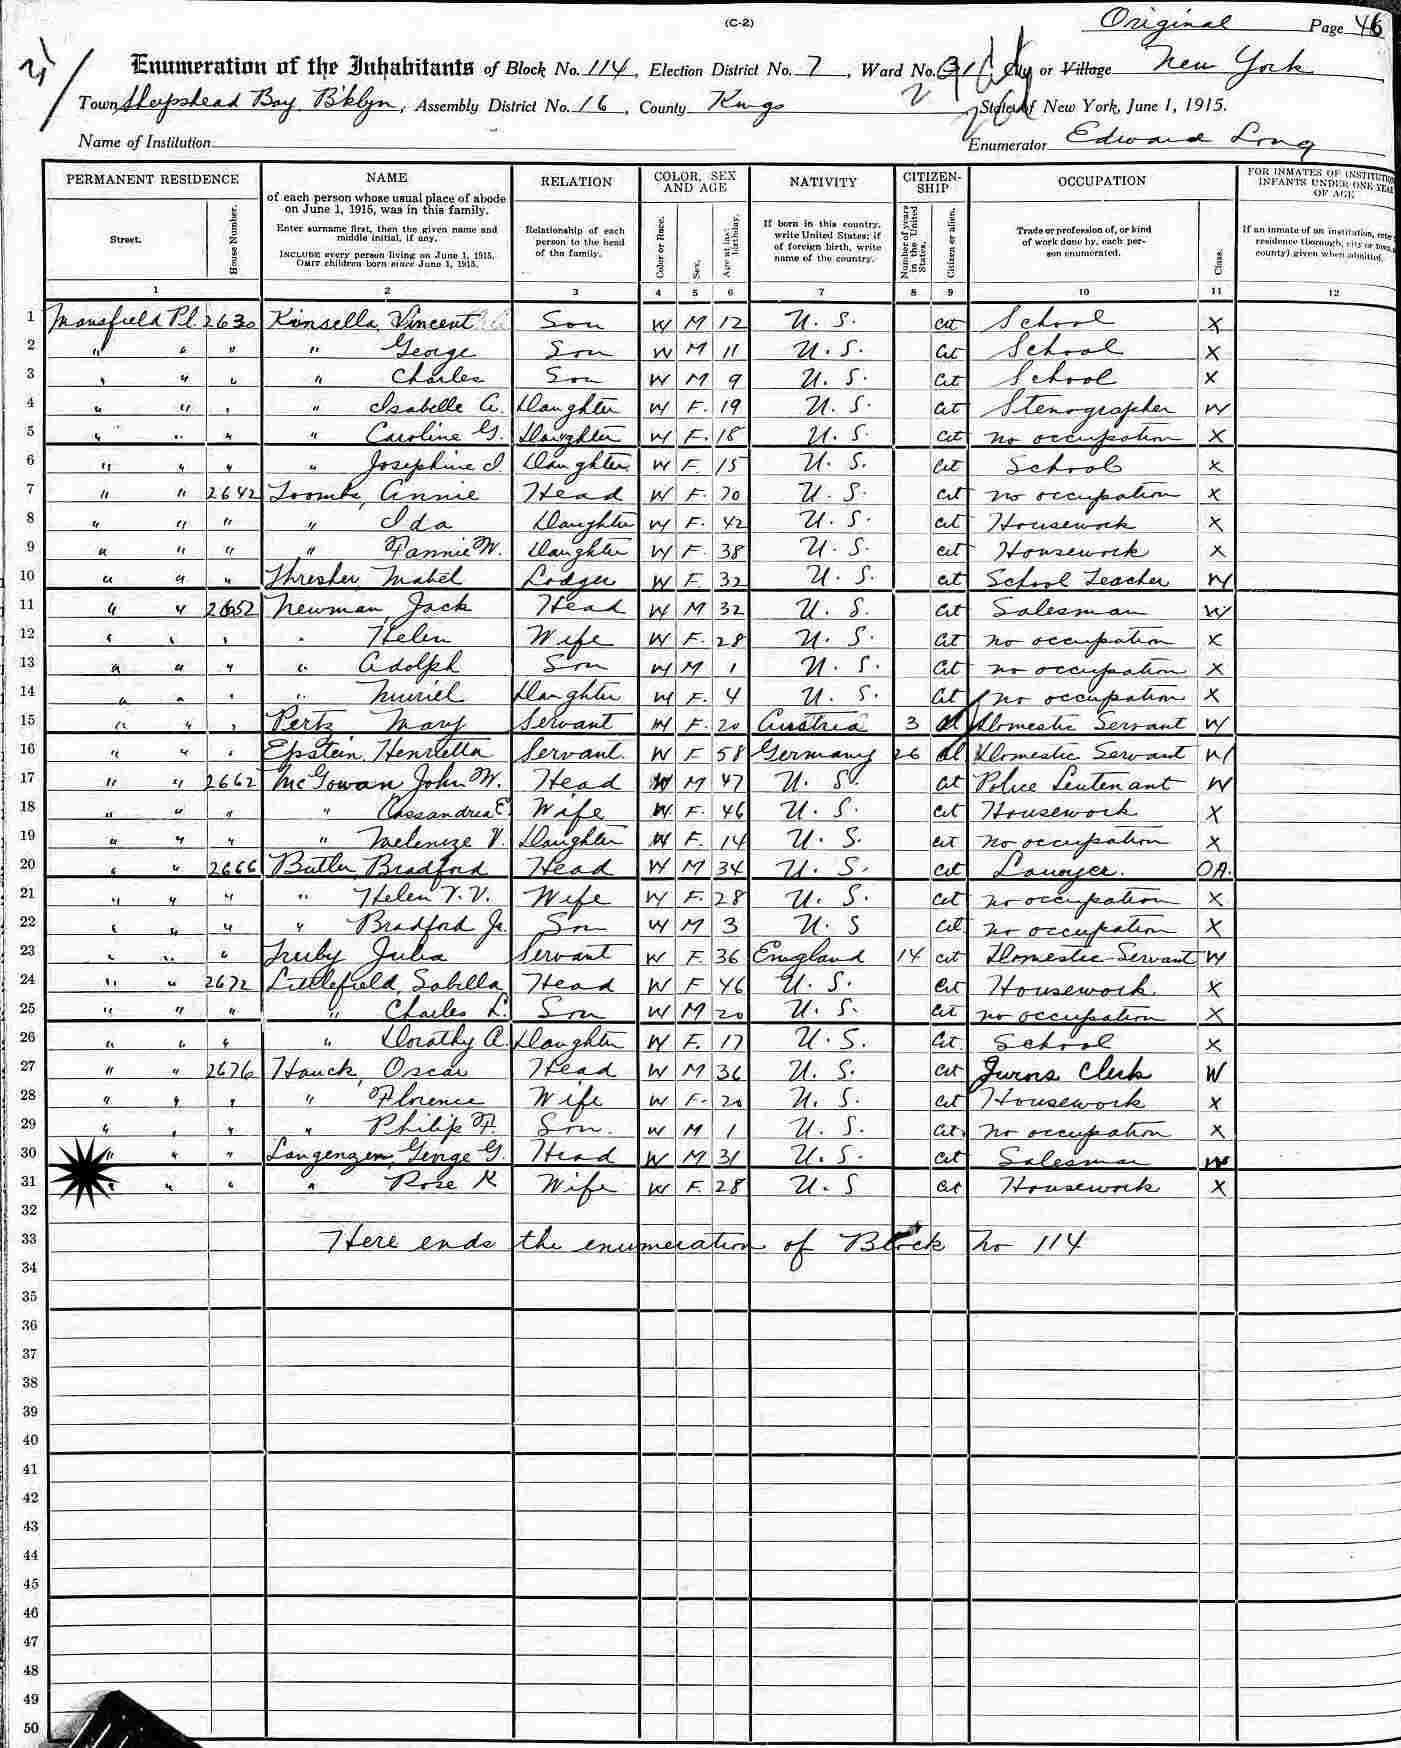 (C-2)
Original Page 46
Enumeration of the Inhabitants of Block No. 114, Election District No. 7, Ward No. 31 City or Village New York
Town Sheepshead Bay B'klyn, Assembly District No. 16, County Kings, State of New York, June 1, 1915.
Name of Institution Enumerator Edward Long
PERMANENT RESIDENCE NAME RELATION COLOR, SEX AND AGE NATIVITY CITIZENSHIP OCCUPATION FOR INMATES OF INSTITUTION INFANTS UNDER ONE YEAR OF AGE
Street. House Number. of each person whose usual place of abode on June 1, 1915, was in this family. Enter surname first, then the given name and middle initial, if any. INCLUDE every person living on June 1, 1915. OMIT children born since June 1, 1915. Relationship of each person to the head of the family. Color or Race. Sex. Age at last birthday. If born in this country, write United States; if of foreign birth, write name of the country. Number of years in the United States. Citizen or alien. Trade or profession of, or kind of work done by, each person enumerated. Class. If an inmate of an institution, enter residence (borough, city or town, county) given when admitted.
1 2 3 4 5 6 7 8 9 10 11 12
1 Mansfield Pl. 2630 Kinsella, Vincent Son W M 12 U. S. Cit School X
2 " " " " George Son W M 11 U. S. Cit School X
3 " " " " Charles Son W M 9 U. S. Cit School X
4 " " " " Isabelle A. Daughter W F. 19 U. S. Cit Stenographer W
5 " " " " Caroline G. Daughter W F. 18 U. S. Cit no occupation X
6 " " " " Josephine I. Daughter W F. 15 U. S. Cit School X
7 " " 2642 Toombs, Annie Head W F. 70 U. S. Cit no occupation X
8 " " " " Ida Daughter W F. 42 U. S. Cit Housework X
9 " " " " Fannie W. Daughter W F. 38 U. S. Cit Housework X
10 " " " Thresher, Mabel Lodger W F. 32 U. S. Cit School Teacher W
11 " " 2652 Newman, Jack Head W M 32 U. S. Cit Salesman W
12 " " " " Helen Wife W F. 28 U. S. Cit no occupation X
13 " " " " Adolph Son W M 1 U. S. Cit no occupation X
14 " " " " Muriel Daughter W F. 4 U. S. Cit no occupation X
15 " " " Pertz Mary Servant W F. 20 Austria 3 Al Domestic Servant W
16 " " " Epstein, Henrietta Servant W F 58 Germany 26 Al Domestic Servant W
17 " " 2662 McGowan, John W. Head W M 47 U. S. Cit Police Leutenant W
18 " " " " Cassandria E. Wife W F. 46 U. S. Cit Housework X
19 " " " " V. Daughter W F. 14 U. S. Cit no occupation X
20 " " 2666 Butler, Bradford Head W M 34 U. S. Cit Lawyer. OA.
21 " " " " Helen V. V. Wife W F. 28 U. S. Cit no occupation X
22 " " " " Bradford Jr. Son W M 3 U. S Cit no occupation X
23 " " " Truby Julia Servant W F. 36 England 14 Cit Domestic Servant W
24 " " 2672 Littlefield, Sabella Head W F 46 U. S. Cit Housework X
25 " " " " Charles L. Son W M 20 U. S. Cit no occupation X
26 " " " " Dorathy A. Daughter W F. 17 U. S. Cit School X
27 " " 2676 Hauck, Oscar Head W M 36 U. S. Cit Jurors Clerk W
28 " " " " Florence Wife W F. 20 U. S. Cit Housework X
29 " " " " Philip F. Son. W M 1 U. S. Cit. no occupation X
30 " " " Langenzen, George G. Head W M 31 U. S. Cit Salesman W
31 " " " " Rose K Wife W F. 28 U. S Cit Housework X
32
33 Here ends the enumeration of Block No 114
34
35
36
37
38
39
40
41
42
43
44
45
46
47
48
49
50